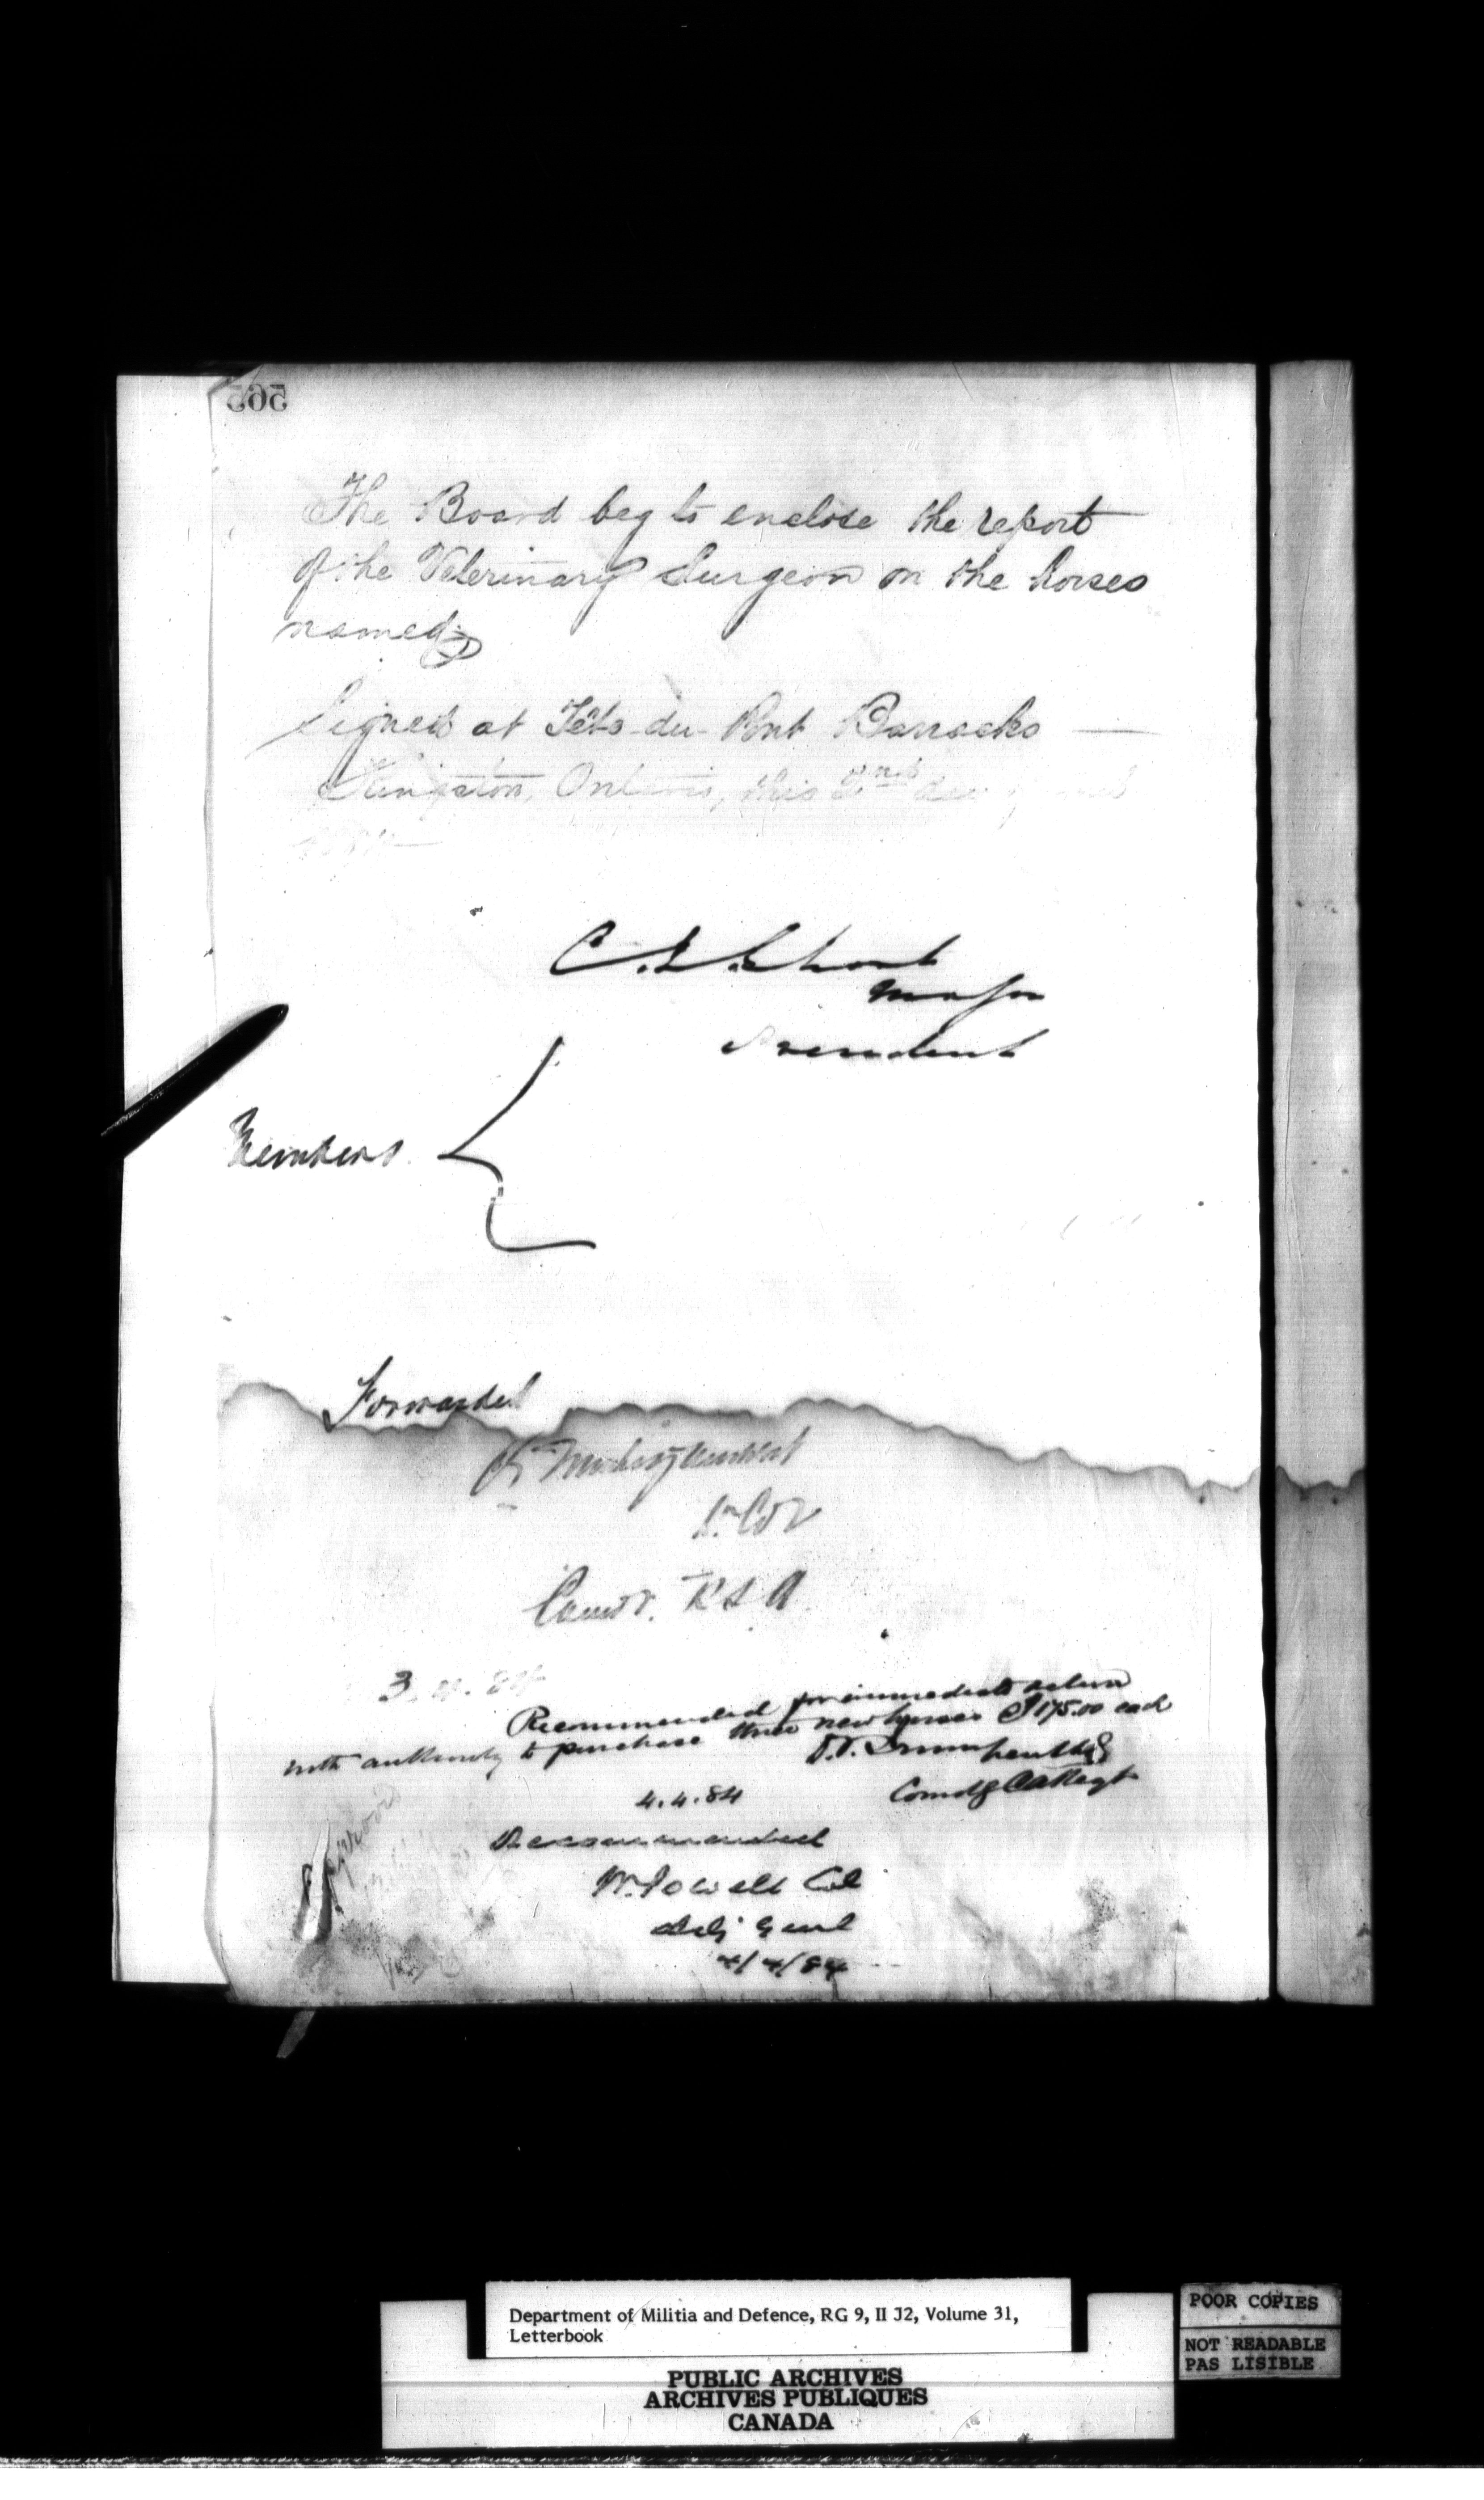 565
The Board beg to enclose the report
of the Veterinary Surgeon on the horses
named
Signed at Tête-du-Pont Barracks
Kingston, Ontario, this 2nd day
C. Short
Major
President
Members
Forwarded
Lt Col
Comdt. R S A
3.4.84
Recommended for immediate action
with authority to purchase three new horses @ $175.00 each
4.4.84
Comdg CA Regt
Recommended
W. Powell Col
Adj Genl
4/4/84
Department of Militia and Defence, RG 9, II J2, Volume 31,
Letterbook
PUBLIC ARCHIVES
ARCHIVES PUBLIQUES
CANADA
POOR COPIES
NOT READABLE
PAS LISIBLE